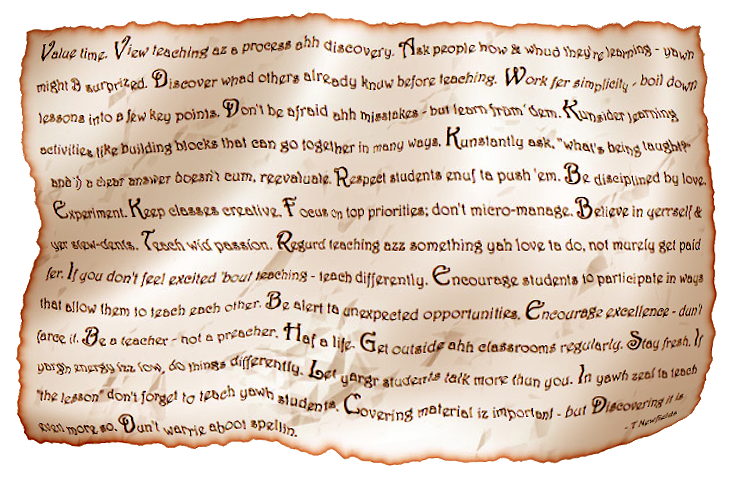 Value time. View teaching az a process ahh discovery. Ask people how & whud they're learning - yawn
might B surprized. Discover whad others already knuw before teaching. Work fer simplicity - boil down
lessons into a few key points. Don't be afraid ahh misstakes - but learn fram' dem. Kunsider learning
activities like building blocks that can go together in many ways. Kunstantly ask, "what's being taught?"
and if a clear answer doesn't cum, reevaluate. Respect students enuf to push 'em. Be disciplined by love.
Experiment. Keep classes creative. Focus on top priorities; don't micro-manage. Believe in yerrself &
yer stew-dents. Teach wid passion. Regard teaching azz something yah love to do, not murely get paid
fer. If you don't feel excited 'bout teaching - teach differently. Encourage students to participate in ways
that allow them to teach each other. Be alert to unexpected opportunities. Encourage excellence - dun't
farce it. Be a teacher - not a preacher. Haf a life. Get outside ahh classrooms regularly. Stay fresh. If
yargh energy izz low, do things differently. Let yargr students talk more than you. In yawh zeal to teach
"the lesson" don't forget to teach yawh students. Covering material iz important - but Discovering it is
even more so. Dun't warrie aboot spellin.
- T Newfields